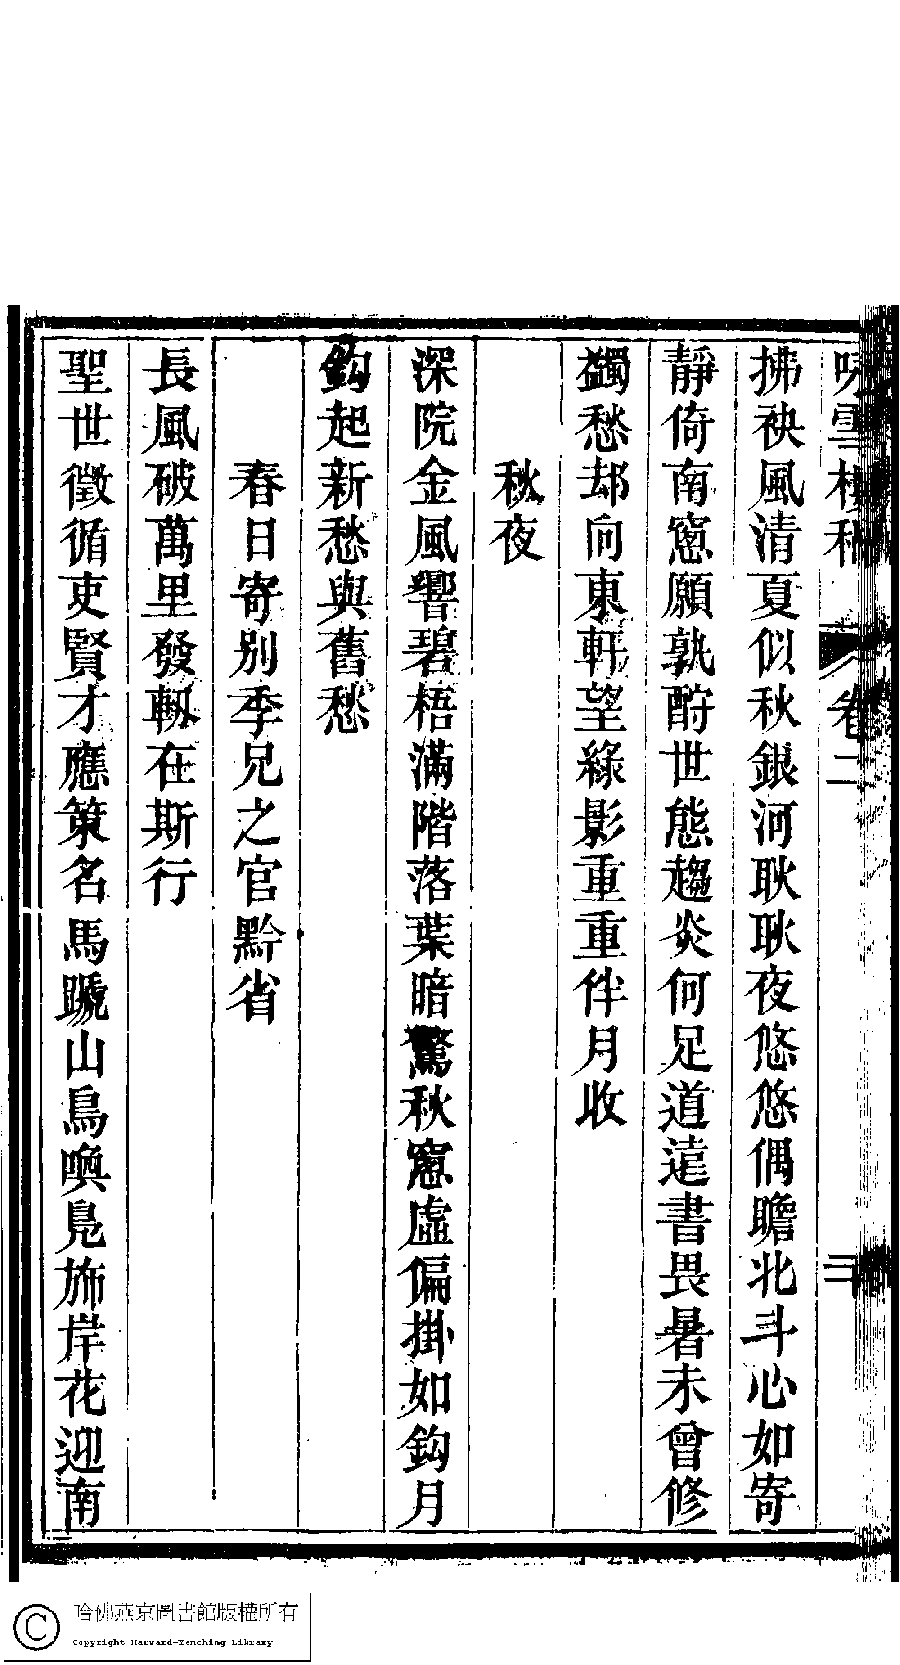 咏雪樓稿 卷二 三
拂袂風清夏似秋銀河耿耿夜悠悠偶瞻北斗心如寄
靜倚南窻願孰酧世態趨炎何足道遠書畏暑未曾修
蠲愁却向東軒望綠影重重伴月收
秋夜
深院金風響碧梧滿階落葉暗驚秋窻虛偏掛如鈎月
鈎起新愁與舊愁
春日寄别季兄之官黔省
長風破萬里發軔在斯行
聖世徵循吏賢才應策名馬蹏山鳥喚鳬斾岸花迎南
哈佛燕京圖書館版權所有
Copyright Harvard-Yenching Library